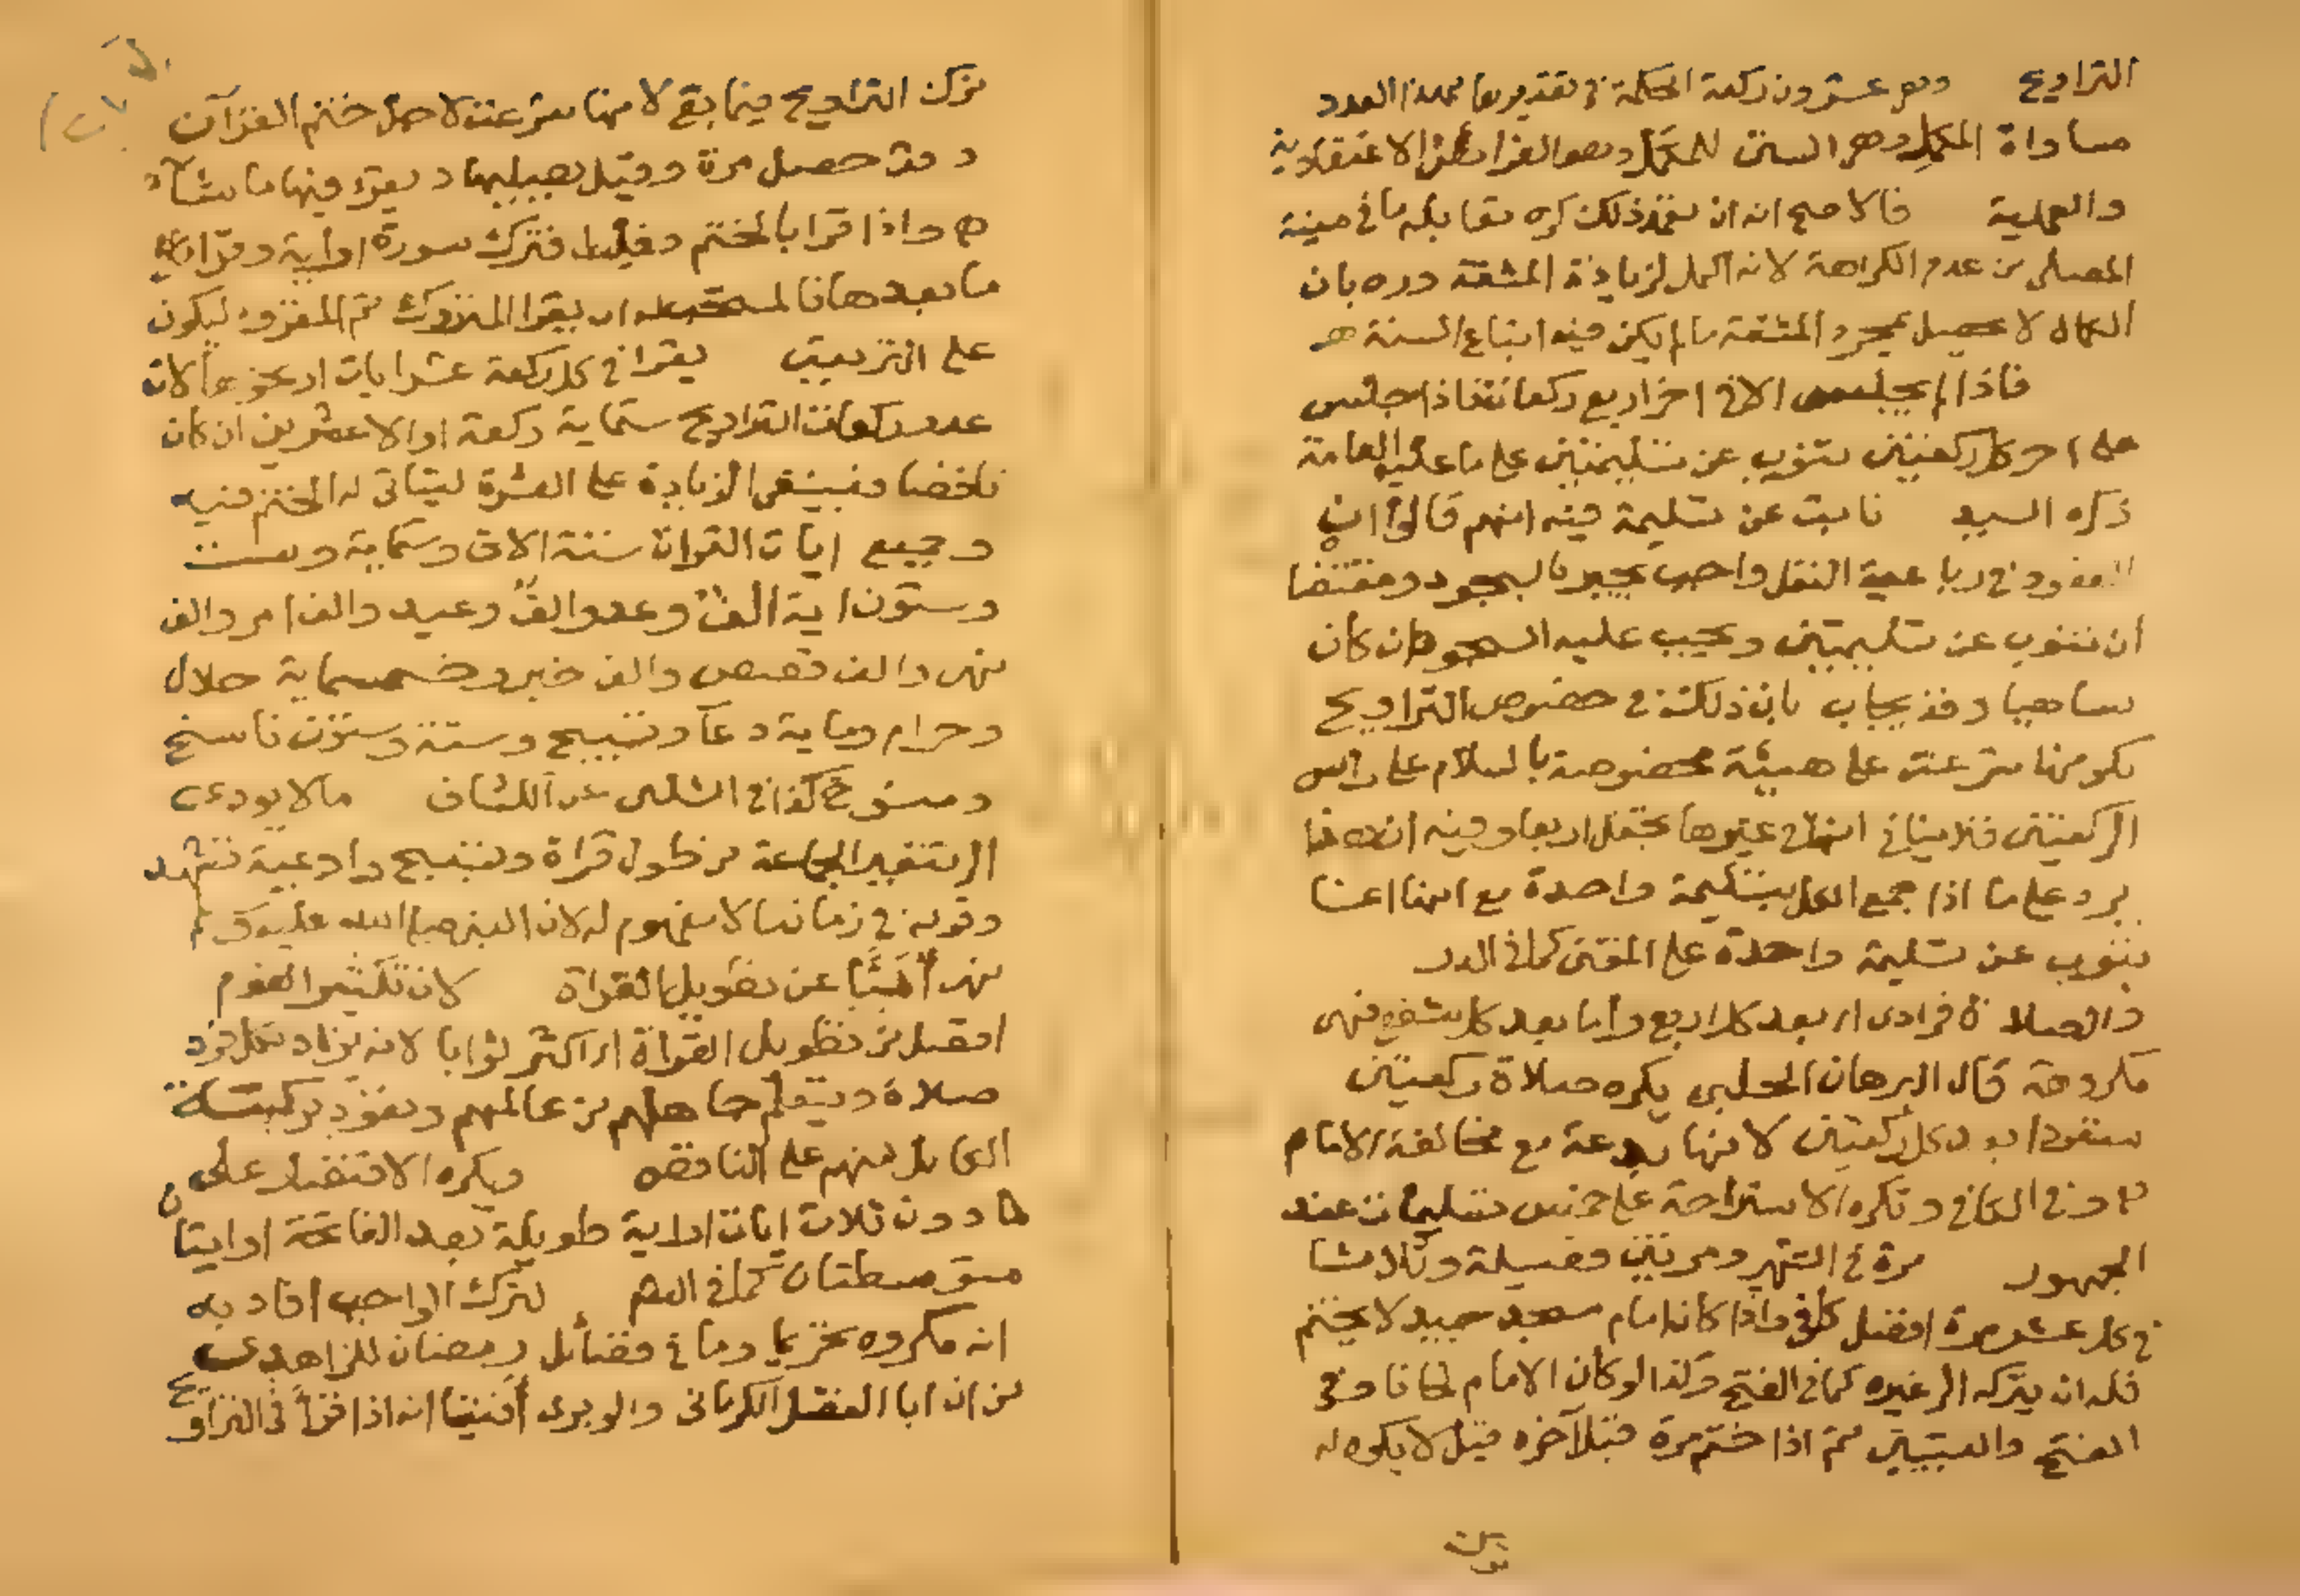 التراويح وهي عشرون ركعة الحكمة في تقديرها بهذا العدد
مساواة المكمِل وهي السنن للمكمَل وهو الفرائض الاعتقادية
والعملية فالاصح انه ان تعمد ذلك كره مقابله ما في منية
المصلى من عدم الكراهة لانه اكمل لزيادة المشقة ورد بان
الكمال لا يحصل بمجرد المشقة ما لم يكن فيه اتباع السنة
فاذا لم يجلس الا في اخر اربع ركعات فاذا جلس
على اخر كل ركعتين تنوب عن تسليمتين على ما عليه العامة
ذكره السيد نابت عن تسليمة فيه انهم قالوا ان
القعود في رباعية النفل واجب يجبر بالسجود ومقتضا
ان تنوب عن تسليمتين ويجب عليه السهو ان كان
ساهيا وقد يجاب بان ذلك في خصوص التراويح
لكونها شرعت على هيئة مخصوصة بالسلام على راس
الركعتين فلا ينافي انها في غيرها تجعل اربعا وفيه ان هذا
يرد على ما اذا جمع الكل بتسليمة واحدة مع انها
تنوب عن تسليمة واحدة على المفتى كما في الدر
والصلاة فرادى اى بعد كل اربع واما بعد كل شفع فهى
مكروهة قال البرهان الحلبى يكره صلاة ركعتين
منفردا بعد كل ركعتين لانها بدعة مع مخالفة الامام
وفي الكافي وتكره الاستراحة على خمس تسليمات عند
الجمهور مرة في الشهر ومرتين فضيلة وثلاثا
في كل عشر مرة افضل كافي واذا كان امام مسجد حييه لا يختم
فله ان يتركه الى غيره كما في الفتح وكذا لو كان الامام لحانا وفي
الفتح والتبيين ثم اذا ختم مرة قبل اخره قيل لا يكره له
ترك التراويح فيما بقى لانها شرعت لاجل ختم القرآن
وقد حصل مرة وقيل يصليها ويقرء فيها ما شآء
واذا قرا بالختم وغلط فترك سورة او آية وقرا
ما بعدها فالمستحب له ان يقرا المتروك ثم المقروء ليكون
على الترتيب يقرا في كل ركعة عشر ايات او نحوها لان
عدد ركعات التراويح ستماية ركعة او الا عشرين ان كان
ناقصا فينبغى الزيادة على العشرة ليتاتى له الختم فيه
وجميع ايات القران ستة الاف وستماية وست
وستون اية الف وعد والف وعيد والف امر والف
نهى والف قصص والف خبر وخمسماية حلال
وحرام وماية دعآ وتسبيح وستة وستون ناسخ
ومنسوخ كذا في الشلبى عن الكشاف ما لا يودى
الى تنفير الجماعة من طول قراة وتسبيح وادعية تشهد
وقوله في زماننا لا مفهوم له لان النبى صلى الله عليه وسلم
نهى ائمتنا عن تطويل القراة لان تكثير القوم
افضل من تطويل القراة اى اكثر ثوابا لانه يزاد بكل فرد
صلاة ويتعلم جاهلهم من عالمهم وتعود بركة
الكامل منهم على الناقص ويكره الاقتصار على
ما دون ثلاث ايات او اية طويلة بعد الفاتحة او ايتان
متوسطتان كما في لترك الواجب افاد به
انه مكروه تحريما وما في فضائل رمضان للزاهدى
من ان ابا الفضل الكرمانى والوبرى أفتيا انه اذا قرأ في التراويح